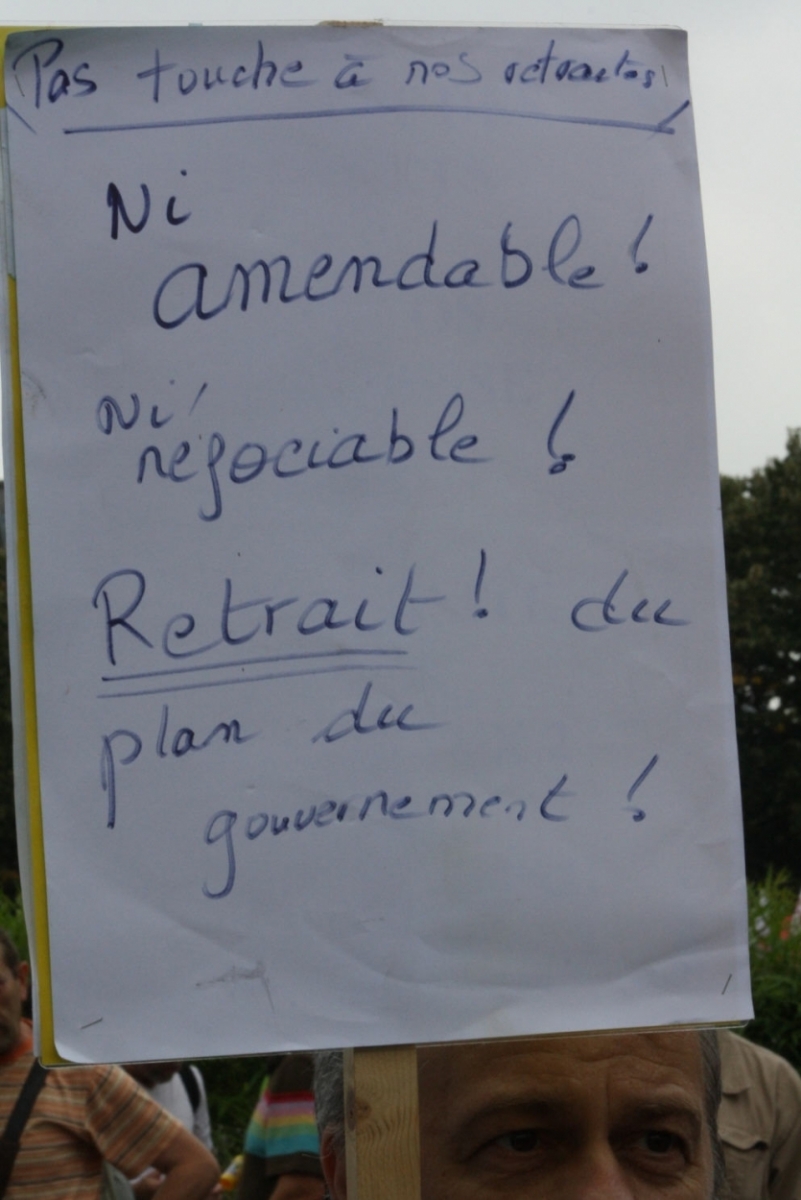 Pas touche à nos retraites!
Ni
amendable !
Ni
négociable !
Retrait ! du
plan du
gouvernement !